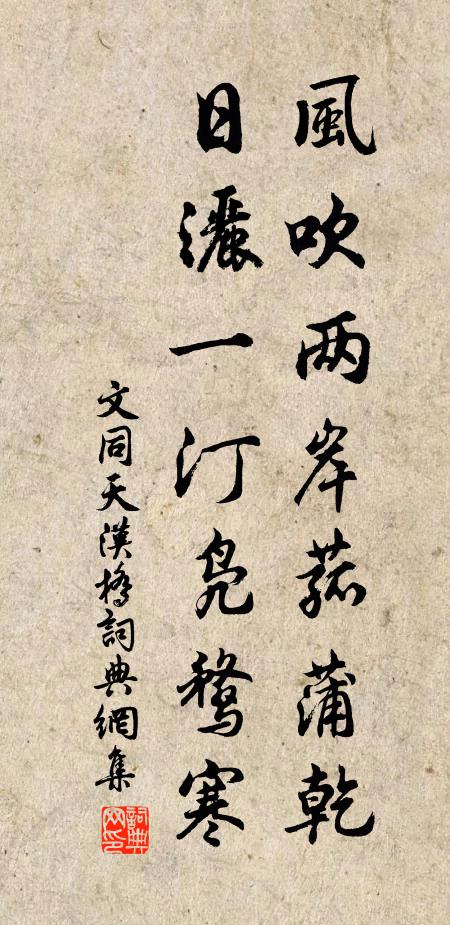 風吹两岸菰蒲乾
日灑一汀鳧鶩寒
文同天漢橋詞典網集
詞典
网印